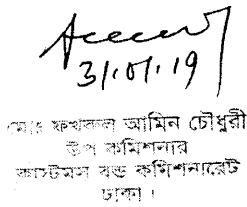 31.01.19
মোঃ ফখরুল আমিন চৌধুরী
উপ কমিশনার
কাস্টমস বন্ড কমিশনারেট
ঢাকা।